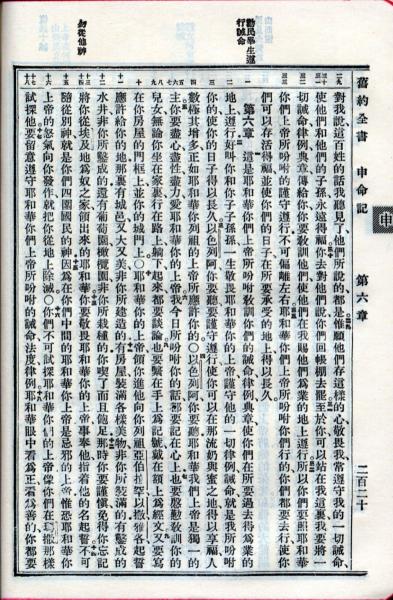 舊約全書 申命記 第六章 二百二十
申
勸民畢生遵
行誡命
勿從他神
對我說這百姓的話我聽見了他們所說的都是惟願他們存這樣的心敬畏我常遵守我的一切誡命
使他們和他們的子孫永遠得福你去對他們說你們回帳棚去罷至於你可以站在我這裏我要將一
切誡命律例典章傳給你你要敎訓他們使他們在我賜他們爲業的地上遵行所以你們要照耶和華
你們上帝所吩咐的謹守遵行不可偏離左右耶和華你們上帝所吩咐你們行的你們都要去行使你
們可以存活得福並使你們的日子在所要承受的地上得以長久
第六章 這是耶和華你們上帝所吩咐敎訓你們的誡命律例典章使你們在所要過去得爲業的
地上遵行好叫你和你子子孫孫一生敬畏耶和華你的上帝謹守他的一切律例誡命就是我所吩咐
你的使你的日子得以長久以色列阿你要聽要謹守遵行使你可以在那流奶與蜜之地得以享福人
數極其增多正如耶和華你列祖的上帝所應許你的○以色列阿你要聽耶和華我們上帝是獨一的
主你要盡心盡性盡力愛耶和華你的上帝我今日所吩咐你的話都要記在心上也要慇懃敎訓你的
兒女無論你坐在家裏行在路上躺下起來都要談論也要繫在手上爲記號戴在額上爲經文又要寫
在你房屋的門框上並你的城門上○耶和華你的上帝領你進他向你列祖亞伯拉罕以撒雅各起誓
應許給你的地那裏有城邑又大又美非你所建造的有房屋裝滿各樣美物非你所裝滿的有鑿成的
水井非你所鑿成的還有葡萄園橄欖園非你所栽種的你喫了而且飽足那時你要謹愼免得你忘記
將你從埃及地爲奴之家領出來的耶和華你要敬畏耶和華你的上帝事奉他指着他的名起誓不可
隨從別神就是你們四圍國民的神因爲在你們中間的耶和華你上帝是忌邪的上帝惟恐耶和華你
上帝的怒氣向你發作就把你從地上除滅○你們不可試探耶和華你們的上帝像你們在瑪撒那樣
試探他要留意遵守耶和華你們上帝所吩咐的誡命法度律例耶和華眼中看爲正看爲善的你都要